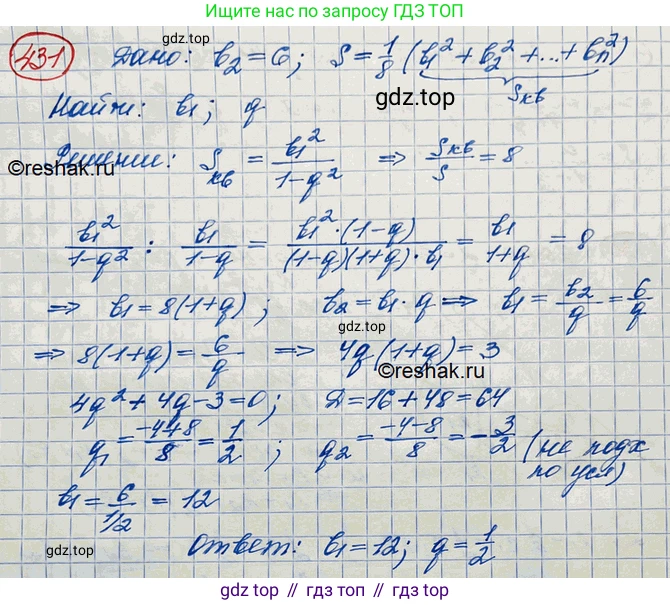 Ищите нас по запросу ГДЗ ТОП
431 Дано: b₂ = 6; S = 1/8 (b₁² + b₂² + ... + bₙ²)
Sкв
gdz.top
Найти: b₁; q
©reshak.ru
Решение: Sкв = b₁²/(1-q²) ⇒ Sкв/S = 8
b₁²/(1-q²) : b₁/(1-q) = b₁²·(1-q)/((1-q)(1+q)·b₁) = b₁/(1+q) = 8
⇒ b₁ = 8(1+q); b₂ = b₁·q ⇒ b₁ = b₂/q = 6/q
gdz.top
⇒ 8(1+q) = 6/q ⇒ 4q(1+q) = 3
©reshak.ru
4q² + 4q - 3 = 0; D = 16 + 48 = 64
q₁ = (-4+8)/8 = 1/2; q₂ = (-4-8)/8 = -3/2 (не подх
по усл)
b₁ = 6/(1/2) = 12
Ответ: b₁ = 12; q = 1/2
gdz.top // гдз.топ // gdz.top // гдз.топ